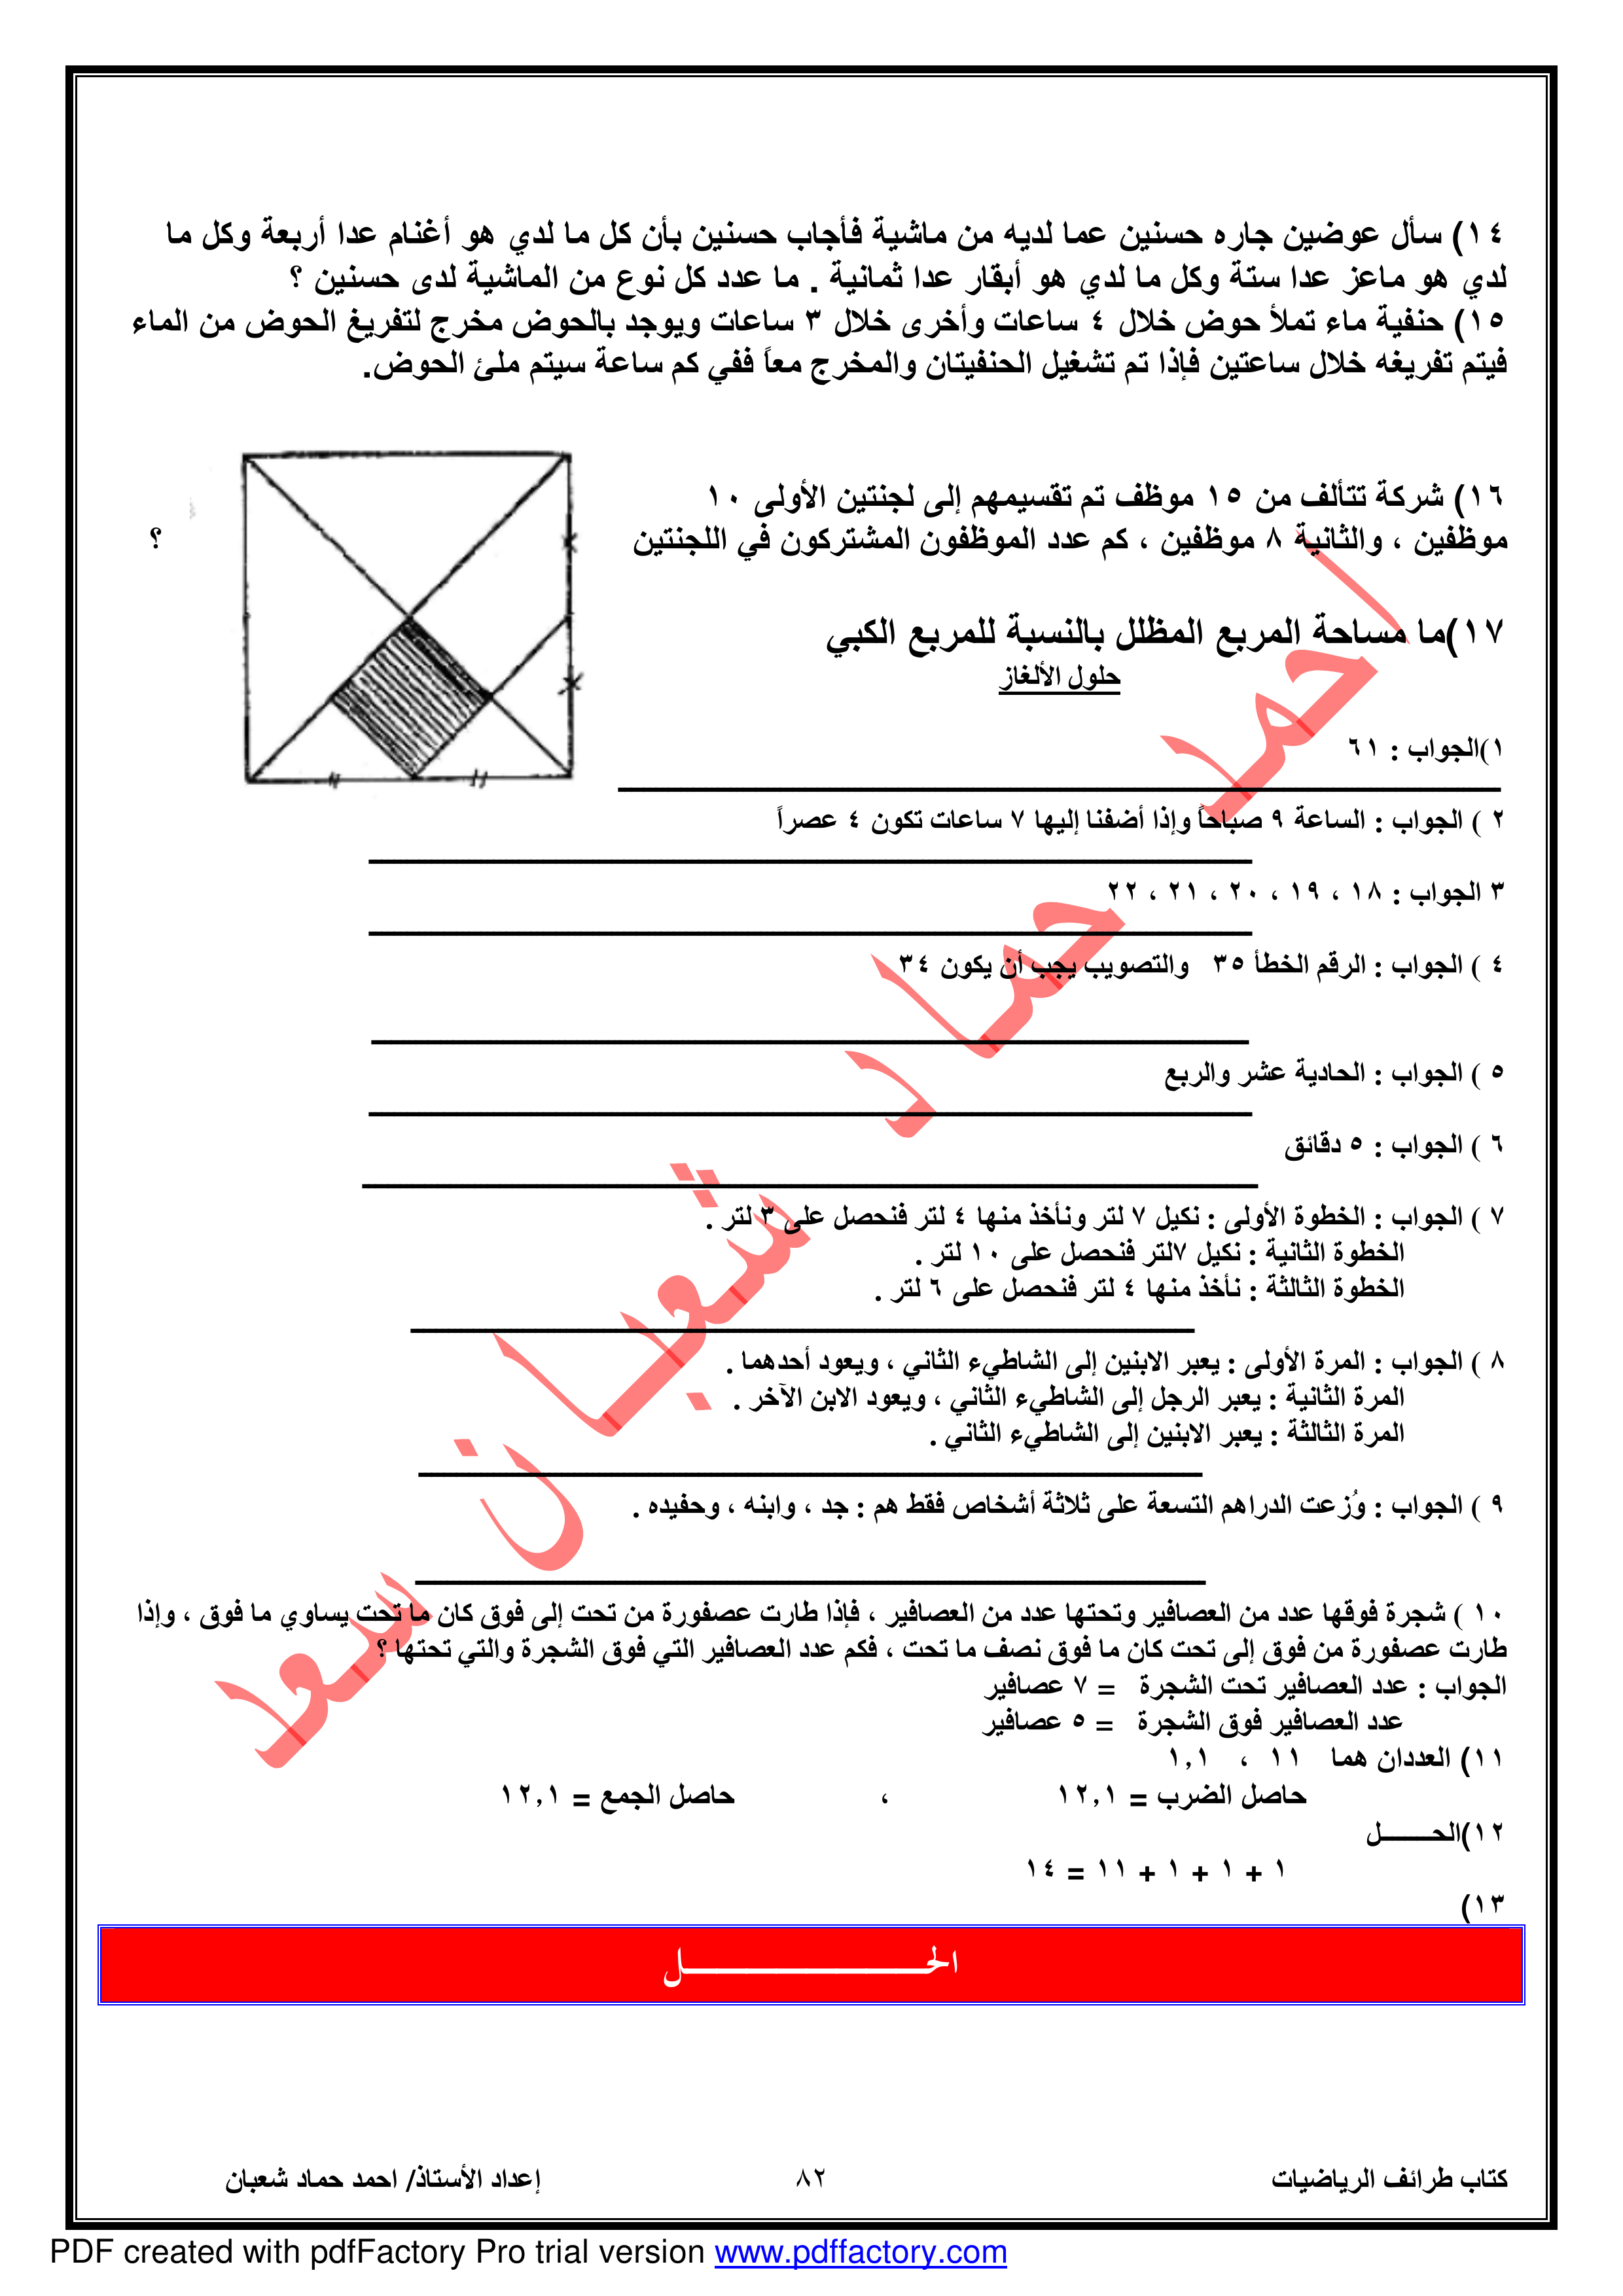 ١٤) سأل عوضين جاره حسنين عما لديه من ماشية فأجاب حسنين بأن كل ما لدي هو أغنام عدا أربعة وكل ما
لدي هو ماعز عدا ستة وكل ما لدي هو أبقار عدا ثمانية . ما عدد كل نوع من الماشية لدى حسنين ؟
١٥) حنفية ماء تملأ حوض خلال ٤ ساعات وأخرى خلال ٣ ساعات ويوجد بالحوض مخرج لتفريغ الحوض من الماء
فيتم تفريغه خلال ساعتين فإذا تم تشغيل الحنفيتان والمخرج معاً ففي كم ساعة سيتم ملئ الحوض.
١٦) شركة تتألف من ١٥ موظف تم تقسيمهم إلى لجنتين الأولى ١٠
موظفين ، والثانية ٨ موظفين ، كم عدد الموظفون المشتركون في اللجنتين ؟
١٧)ما مساحة المربع المظلل بالنسبة للمربع الكبي
حلول الألغاز
١)الجواب : ٦١
٢ ) الجواب : الساعة ٩ صباحاً وإذا أضفنا إليها ٧ ساعات تكون ٤ عصراً
٣ الجواب : ١٨ ، ١٩ ، ٢٠ ، ٢١ ، ٢٢
٤ ) الجواب : الرقم الخطأ ٣٥ والتصويب يجب أن يكون ٣٤
٥ ) الجواب : الحادية عشر والربع
٦ ) الجواب : ٥ دقائق
٧ ) الجواب : الخطوة الأولى : نكيل ٧ لتر ونأخذ منها ٤ لتر فنحصل على ٣ لتر .
الخطوة الثانية : نكيل ٧لتر فنحصل على ١٠ لتر .
الخطوة الثالثة : نأخذ منها ٤ لتر فنحصل على ٦ لتر .
٨ ) الجواب : المرة الأولى : يعبر الابنين إلى الشاطيء الثاني ، ويعود أحدهما .
المرة الثانية : يعبر الرجل إلى الشاطيء الثاني ، ويعود الابن الآخر .
المرة الثالثة : يعبر الابنين إلى الشاطيء الثاني .
٩ ) الجواب : وُزعت الدراهم التسعة على ثلاثة أشخاص فقط هم : جد ، وابنه ، وحفيده .
١٠ ) شجرة فوقها عدد من العصافير وتحتها عدد من العصافير ، فإذا طارت عصفورة من تحت إلى فوق كان ما تحت يساوي ما فوق ، وإذا
طارت عصفورة من فوق إلى تحت كان ما فوق نصف ما تحت ، فكم عدد العصافير التي فوق الشجرة والتي تحتها ؟
الجواب : عدد العصافير تحت الشجرة = ٧ عصافير
عدد العصافير فوق الشجرة = ٥ عصافير
١١) العددان هما ١١ ، ١,١
حاصل الضرب = ١٢,١ ، حاصل الجمع = ١٢,١
١٢)الحـــــل
١ + ١ + ١ + ١١ = ١٤
١٣)
الحـــــــــــــــــل
كتاب طرائف الرياضيات ٨٢ إعداد الأستاذ/ احمد حماد شعبان
PDF created with pdfFactory Pro trial version www.pdffactory.com
احمد حماد شعبان سعد